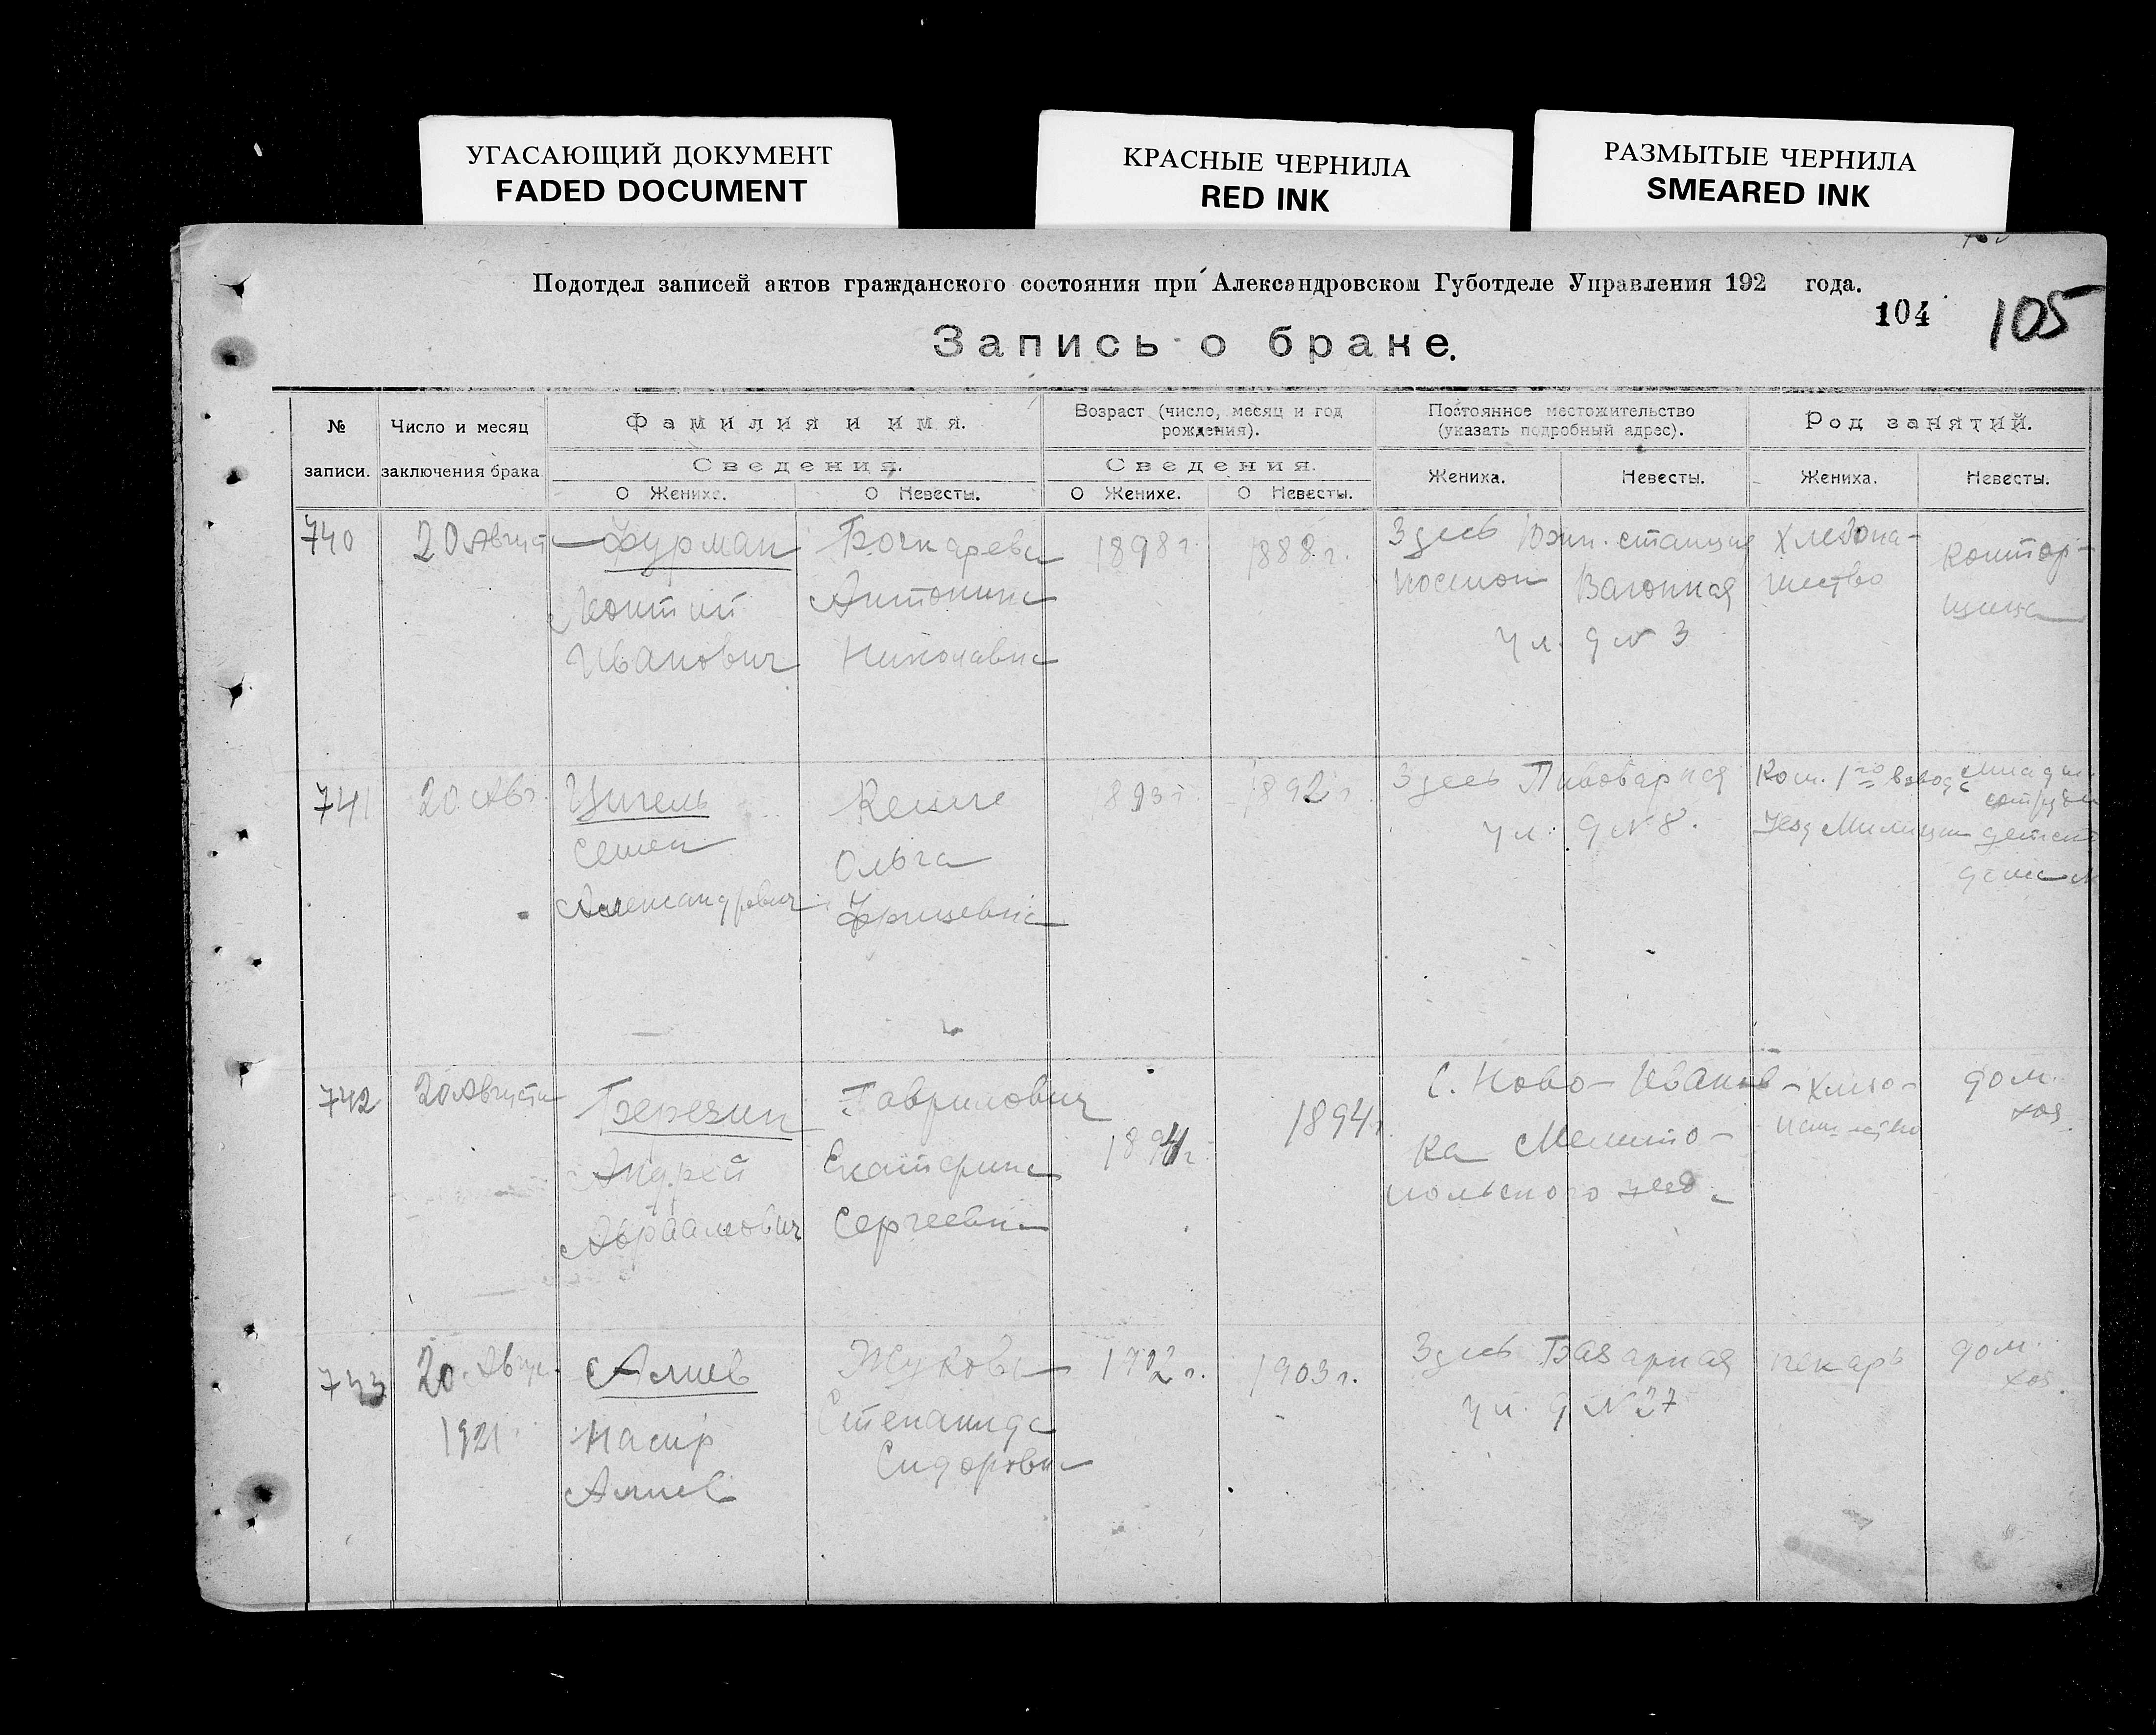 УГАСАЮЩИЙ ДОКУМЕНТ
FADED DOCUMENT
КРАСНЫЕ ЧЕРНИЛА
RED INK
РАЗМЫТЫЕ ЧЕРНИЛА
SMEARED INK
Подотдел записей актов гражданского состояния при Александровском Губотделе Управления 192 года.
104
105
Запись о браке.
№
записи.
Число и месяц
заключения брака
Фамилия и имя.
Сведения.
О Женихе.
О Невесты.
Возраст (число, месяц и год
рождения).
Сведения.
О Женихе.
О Невесты.
Постоянное местожительство
(указать подробный адрес).
Жениха.
Невесты.
Род занятий.
Жениха.
Невесты.
740
20 Август
Фурман
Иванович
Бочкарева
Антонина
Николавна
1898 г.
1888 г.
Здесь Южн. станция
поселок Вагонная
ул. д № 3
Хлебопа-
шество
Контор-
щица
741
20 Авг.
Цигель
Семен
Александрович
Ольга
893 г.
1892 г.
Здесь Пивоварная
ул. д № 8.
Ком. 1го взвода
Уезд Милиции
742
20 Августа
Березин
Андрей
Абраамович
Гаврилович
Екатерина
Сергеевна
1894 г.
1894 г.
С. Ново-Иванов-
ка Мелито-
польского уезд.
Хлебо-
пашество
дом.
хоз.
743
20. Авгус.
1921
Алиев
Насир
Алиев
Жукова
Степанида
Сидоровна
1902 г.
1903 г.
Здесь Базарная
ул. д № 27
пекарь
дом.
хоз.